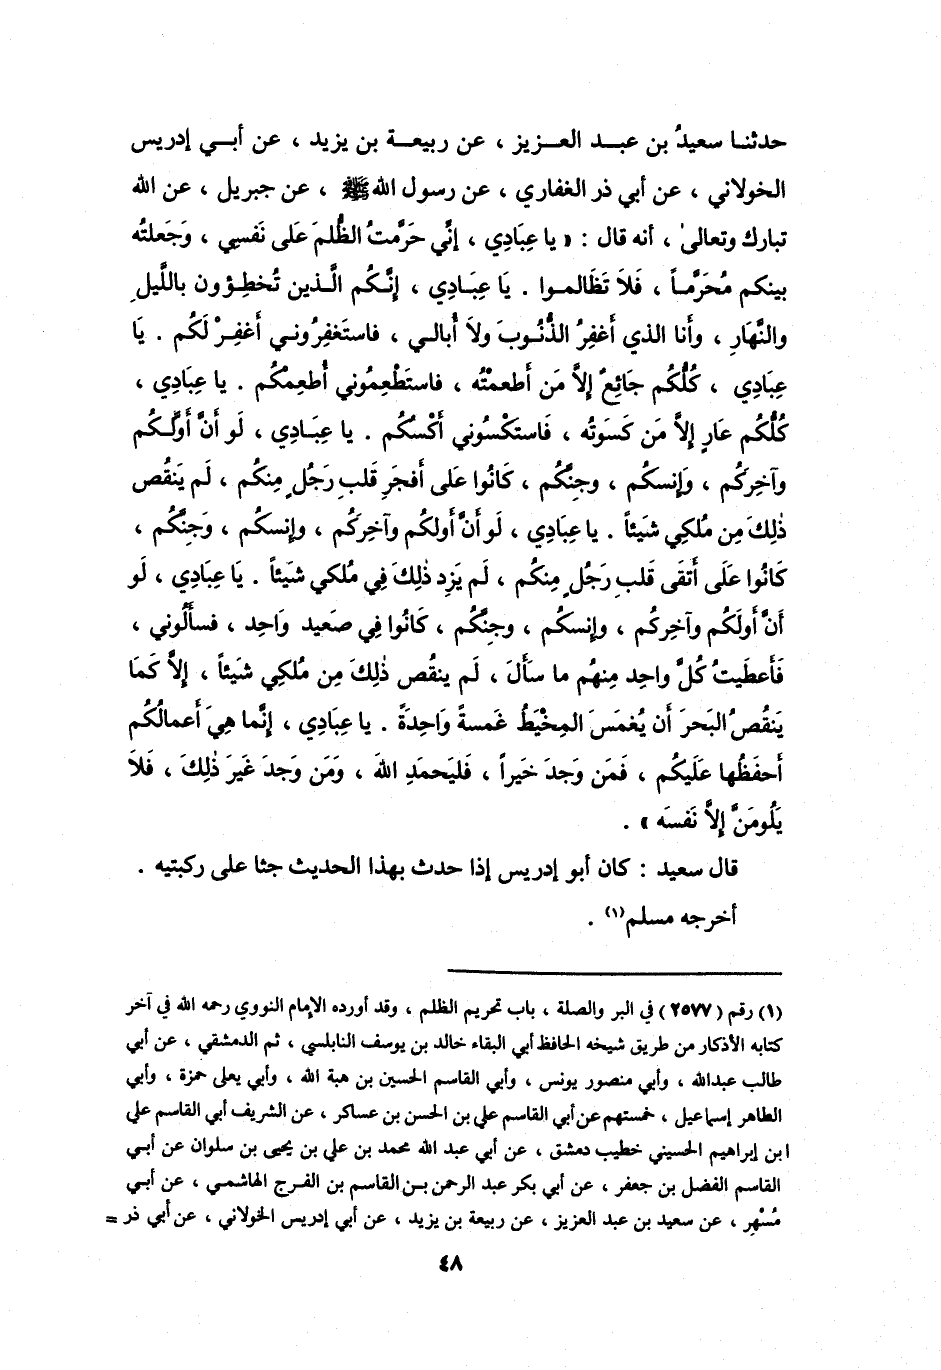 حدثنا سعيدُ بن عبد العزيز ، عن ربيعة بن يزيد ، عن أبي إدريس
الخولاني ، عن أبي ذر الغفاري ، عن رسول الله ﷺ ، عن جبريل ، عن الله
تبارك وتعالىٰ ، أنه قال : « يا عِبَادِي ، إنَّي حَرَّمتُ الظُّلمَ عَلى نَفسِي ، وَجَعلتُه
بينكم مُحَرَّماً ، فَلاَ تَظَالموا . يَا عِبَادِي ، إنَّكُم الَّذين تُخطِؤون باللَّيلِ
والنَّهَارِ ، وأَنا الذي أَغفِرُ الذُّنُوبَ ولاَ أُبالي ، فاستَغفِرُوني أَغفِرْ لَكُم . يَا
عِبَادِي ، كُلُّكُم جَائِعٌ إلاَّ مَن أَطعمتُه ، فاستَطْعِمُوني أُطعِمْكُم . يا عِبَادِي ،
كُلُّكُم عَارٍ إلاَّ مَن كَسَوتُه ، فَاستَكْسُوني أَكْسُكُم . يا عِبَادِي ، لَو أَنَّ أَوَّلَكُم
وآخِرَكُم ، وَإنسكُم ، وجِنَّكُم ، كَانُوا عَلى أَفجَرِ قَلبِ رَجُلٍ مِنكُم ، لَم يَنقُص
ذٰلِكَ مِن مُلكِي شَيئاً . يا عِبَادِي ، لَو أَنَّ أَولكُم وآخِركُم ، وإنسكُم ، وَجِنَّكُم ،
كَانُوا عَلَى أَتقَى قَلبِ رَجُلٍ مِنكُم ، لَم يَزِد ذٰلِكَ فِي مُلكي شَيئاً . يَا عِبَادِي ، لَو
أَنَّ أَولَكُم وآخِركُم ، وإنسكُم ، وجِنَّكُم ، كَانُوا فِي صَعيد وَاحِد ، فسأَلُوني ،
فَأَعطَيتُ كُلَّ واحِد مِنهُم ما سأَلَ ، لَم ينقُص ذٰلِكَ مِن مُلكِي شَيئاً ، إلاَّ كَمَا
يَنقُصُ البَحرَ أَن يُغمَسَ المِخْيَطُ غَمسةً وَاحِدَةً . يا عِبَادِي ، إنَّما هِيَ أَعمالُكُم
أَحفَظُها عَلَيكُم ، فَمَن وَجَدَ خَيراً ، فَليَحمَدِ اللهَ ، وَمَن وَجَدَ غَيرَ ذٰلِكَ ، فَلاَ
يَلُومَنَّ إلاَّ نَفسَه » .
قال سعيد : كان أبو إدريس إذا حدث بهذا الحديث جثا على ركبتيه .
أخرجه مسلم(١) .
(١) رقم (٢٥٧٧) في البر والصلة ، باب تحريم الظلم ، وقد أورده الإمام النووي رحمه الله في آخر
كتابه الأذكار من طريق شيخه الحافظ أبي البقاء خالد بن يوسف النابلسي ، ثم الدمشقي ، عن أبي
طالب عبدالله ، وأبي منصور يونس ، وأبي القاسم الحسين بن هبة الله ، وأبي يعلى حمزة ، وأبي
الطاهر إسماعيل ، خمستهم عن أبي القاسم علي بن الحسن بن عساكر ، عن الشريف أبي القاسم علي
ابن إبراهيم الحسيني خطيب دمشق ، عن أبي عبد الله محمد بن علي بن يحيى بن سلوان عن أبي
القاسم الفضل بن جعفر ، عن أبي بكر عبد الرحمن بن القاسم بن الفرج الهاشمي ، عن أبي
مُسْهِر ، عن سعيد بن عبد العزيز ، عن ربيعة بن يزيد ، عن أبي إدريس الخولاني ، عن أبي ذر =
٤٨